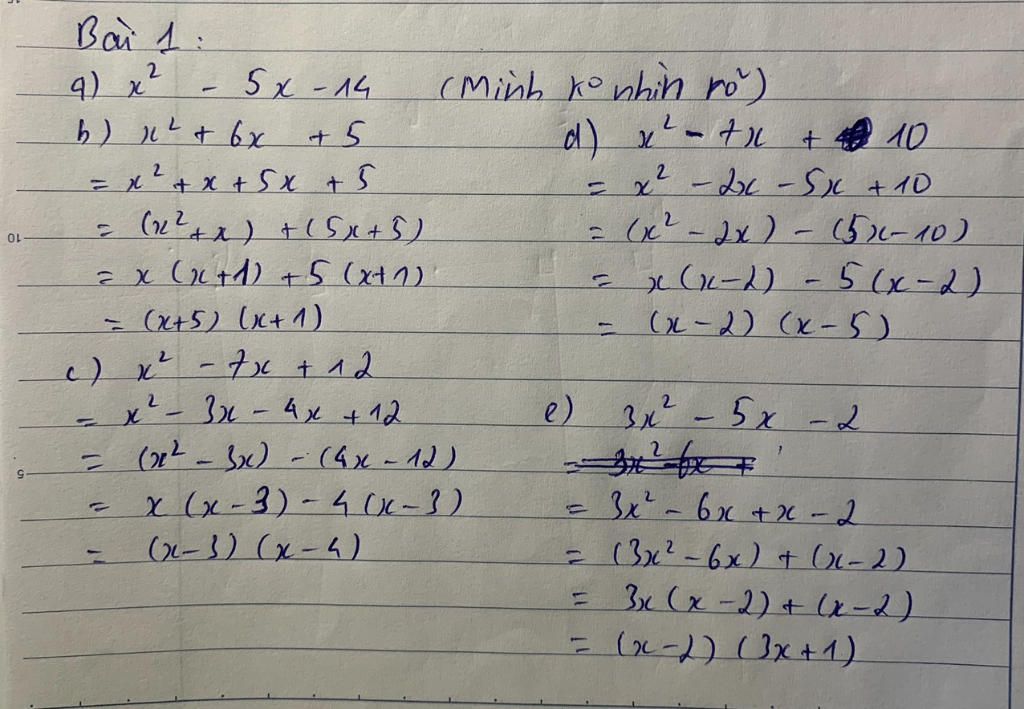 Bài 1:
a) x² - 5x - 14 (Mình ko nhìn rõ)
b) x² + 6x + 5
= x² + x + 5x + 5
= (x² + x) + (5x + 5)
= x (x+1) + 5 (x+1)
= (x+5) (x+1)
c) x² - 7x + 12
= x² - 3x - 4x + 12
= (x² - 3x) - (4x - 12)
= x (x - 3) - 4 (x - 3)
= (x - 3) (x - 4)
d) x² - 7x + 10
= x² - 2x - 5x + 10
= (x² - 2x) - (5x - 10)
= x (x - 2) - 5 (x - 2)
= (x - 2) (x - 5)
e) 3x² - 5x - 2
= 3x² - 6x +
= 3x² - 6x + x - 2
= (3x² - 6x) + (x - 2)
= 3x (x - 2) + (x - 2)
= (x - 2) (3x + 1)
10
5